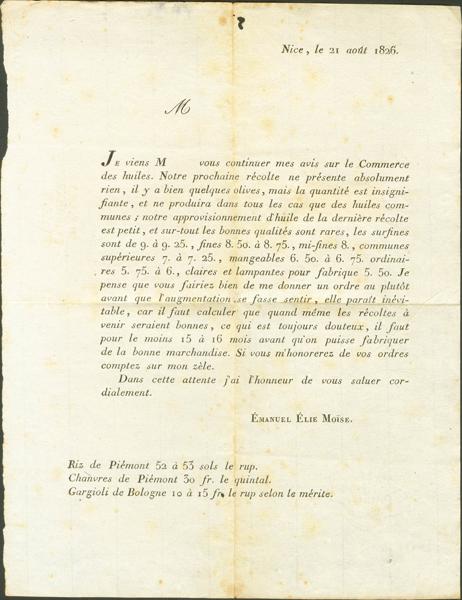 Nice, le 21 août 1826.
M
JE viens M vous continuer mes avis sur le Commerce
des huiles. Notre prochaine récolte ne présente absolument
rien, il y a bien quelques olives, mais la quantité est insigni-
fiante, et ne produira dans tous les cas que des huiles com-
munes; notre approvisionnement d'huile de la dernière récolte
est petit, et sur-tout les bonnes qualités sont rares, les surfines
sont de 9. à 9. 25., fines 8. 50. à 8. 75., mi-fines 8., communes
supérieures 7. à 7. 25., mangeables 6. 50. à 6. 75. ordinai-
res 5. 75. à 6., claires et lampantes pour fabrique 5. 50. Je
pense que vous fairiez bien de me donner un ordre au plutôt
avant que l'augmentation se fasse sentir, elle paraît inévi-
table, car il faut calculer que quand même les récoltes à
venir seraient bonnes, ce qui est toujours douteux, il faut
pour le moins 15 à 16 mois avant qu'on puisse fabriquer
de la bonne marchandise. Si vous m'honorerez de vos ordres
comptez sur mon zèle.
Dans cette attente j'ai l'honneur de vous saluer cor-
dialement.
ÉMANUEL ÉLIE MOÏSE.
Riz de Piémont 52 à 53 sols le rup.
Chanvres de Piémont 30 fr. le quintal.
Gargioli de Bologne 10 à 15 fr. le rup selon le mérite.